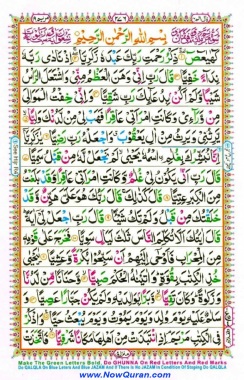 بِسْمِ اللّٰهِ الرَّحْمٰنِ الرَّحِيْمِ
كٓهٰيٰعٓصٓ ذِكْرُ رَحْمَتِ رَبِّكَ عَبْدَهٗ زَكَرِيَّا اِذْ نَادٰى رَبَّهٗ
نِدَآءً خَفِيًّا قَالَ رَبِّ اِنِّيْ وَهَنَ الْعَظْمُ مِنِّيْ وَاشْتَعَلَ الرَّاْسُ
شَيْبًا وَّلَمْ اَكُنْۢ بِدُعَآئِكَ رَبِّ شَقِيًّا وَاِنِّيْ خِفْتُ الْمَوَالِيَ
مِنْ وَّرَآءِيْ وَكَانَتِ امْرَاَتِيْ عَاقِرًا فَهَبْ لِيْ مِنْ لَّدُنْكَ وَلِيًّا
يَّرِثُنِيْ وَيَرِثُ مِنْ اٰلِ يَعْقُوْبَ وَاجْعَلْهُ رَبِّ رَضِيًّا يٰزَكَرِيَّآ
اِنَّا نُبَشِّرُكَ بِغُلٰمِ اسْمُهٗ يَحْيٰى لَمْ نَجْعَلْ لَّهٗ مِنْ قَبْلُ سَمِيًّا
قَالَ رَبِّ اَنّٰى يَكُوْنُ لِيْ غُلٰمٌ وَّكَانَتِ امْرَاَتِيْ عَاقِرًا وَّقَدْ بَلَغْتُ
مِنَ الْكِبَرِ عِتِيًّا قَالَ كَذٰلِكَ قَالَ رَبُّكَ هُوَ عَلَيَّ هَيِّنٌ وَّقَدْ
خَلَقْتُكَ مِنْ قَبْلُ وَلَمْ تَكُ شَيْـًٔا قَالَ رَبِّ اجْعَلْ لِّيْٓ اٰيَةً
قَالَ اٰيَتُكَ اَلَّا تُكَلِّمَ النَّاسَ ثَلٰثَ لَيَالٍ سَوِيًّا فَخَرَجَ عَلٰى قَوْمِهٖ
مِنَ الْمِحْرَابِ فَاَوْحٰٓى اِلَيْهِمْ اَنْ سَبِّحُوْا بُكْرَةً وَّعَشِيًّا يٰيَحْيٰى
خُذِ الْكِتٰبَ بِقُوَّةٍ وَاٰتَيْنٰهُ الْحُكْمَ صَبِيًّا وَّحَنَانًا مِّنْ لَّدُنَّا
وَزَكٰوةً وَكَانَ تَقِيًّا وَّبَرًّۢا بِوَالِدَيْهِ وَلَمْ يَكُنْ جَبَّارًا عَصِيًّا
وَسَلٰمٌ عَلَيْهِ يَوْمَ وُلِدَ وَيَوْمَ يَمُوْتُ وَيَوْمَ يُبْعَثُ حَيًّا وَاذْكُرْ
فِي الْكِتٰبِ مَرْيَمَ اِذِ انْتَبَذَتْ مِنْ اَهْلِهَا مَكَانًا شَرْقِيًّا فَاتَّخَذَتْ
Make The Green Letters Bold, Do GHUNNA On Red Letters And Red Marks
Do QALQLA On Blue Letters And Blue JAZAM And If There Is No JAZAM In Condition Of Stoping Do QALQLA
www.NowQuran.com